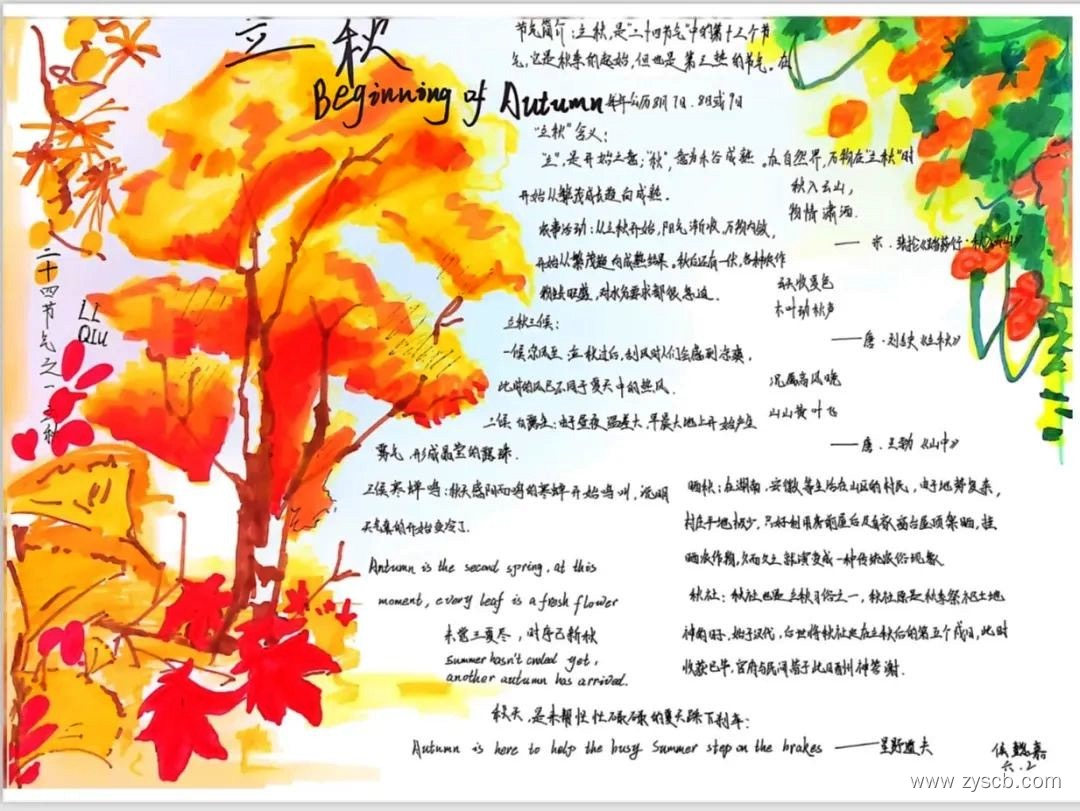 立 秋
Beginning of Autumn
二十四节气之一立秋
LI
QIU
节气简介：立秋，是"二十四节气"中的第十三个节
气，它是秋季的起始，但也是第三热的节气。在
每年公历8月7日、8日或9日
"立秋"含义：
"立"，是开始之意；"秋"，意为禾谷成熟。在自然界，万物在"立秋"时
开始从繁茂成长趋向成熟。
农事活动：从立秋开始，阳气渐收、万物内敛，
开始从繁茂趋向成熟结果。秋后还有一伏，各种农作
物生长旺盛，对水分要求都很急迫。
立秋三候：
一候凉风至：立秋过后，刮风时人们会感到凉爽，
此时的风已不同于夏天中的热风。
二候白露生：由于昼夜温差大，早晨大地上开始产生
雾气，形成晶莹的露珠。
三候寒蝉鸣：秋天感阴而鸣的寒蝉开始鸣叫，说明
天气真的开始变冷了。
Autumn is the second spring, at this
moment, every leaf is a fresh flower
未觉三夏尽，时序已新秋
Summer hasn't ended yet,
another autumn has arrived.
秋天，是来帮忙忙碌碌的夏天踩下刹车：
Autumn is here to help the busy Summer step on the brakes ——星野道夫
秋入云山，
物情潇洒.
云天收夏色
木叶动秋声
——唐·刘言史《立秋》
况属高风晚
山山黄叶飞
——唐·王勃《山中》
晒秋：在湖南、安徽等生活在山区的村民，由于地势复杂，
村庄平地极少，只好利用房前屋后及自家窗台屋顶架晒、挂
晒农作物，久而久之就演变成一种传统农俗现象
秋社：秋社也是立秋习俗之一，秋社原是秋季祭祀土地
神的日子，始于汉代，后世将秋社定在立秋后的第五个戊日，此时
收获已毕，官府与民间皆于此日祭神答谢.
六.2
www.zyscb.com